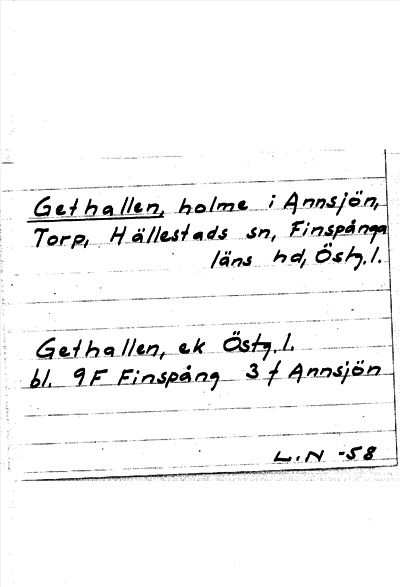 Gethallen, holme i Annsjön,
Torp, Hällestads sn, Finspånga
läns hd, Östg. l.
Gethallen, ek Östg. l.
bl. 9F Finspång 3 f Annsjön
L.N -58